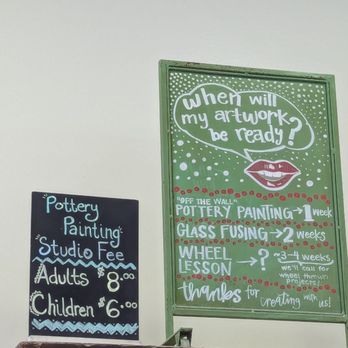 Pottery
Painting
Studio Fee
Adults $8.00
Children $6.00
when will
my artwork
be ready?
"OFF THE WALL"
POTTERY PAINTING → 1 week
GLASS FUSING → 2 weeks
WHEEL
LESSON → ? ~3-4 weeks
we'll call for
wheel thrown
projects!
thanks for creating with us!